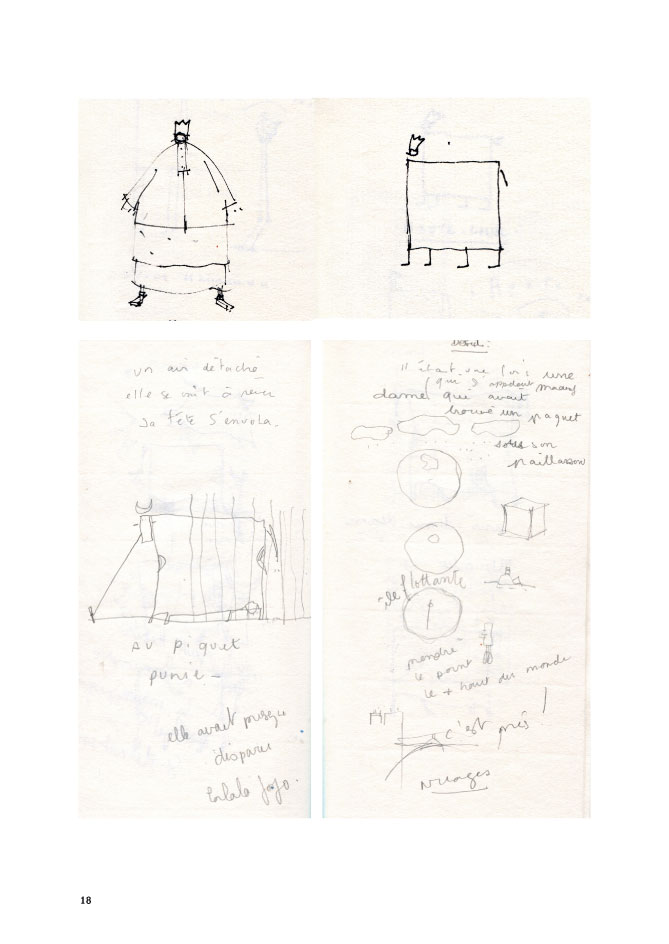 un air détaché
elle se mit à rever
sa tête s'envola.
au piquet
punie -
elle avait presque
disparu
lalala Jojo.
il était une fois une
(qui s'appelait
dame qui avait
trouvé un paquet
sous son
paillasson
île flottante
prendre
le point
le + haut du monde
c'est près
Nuages
18